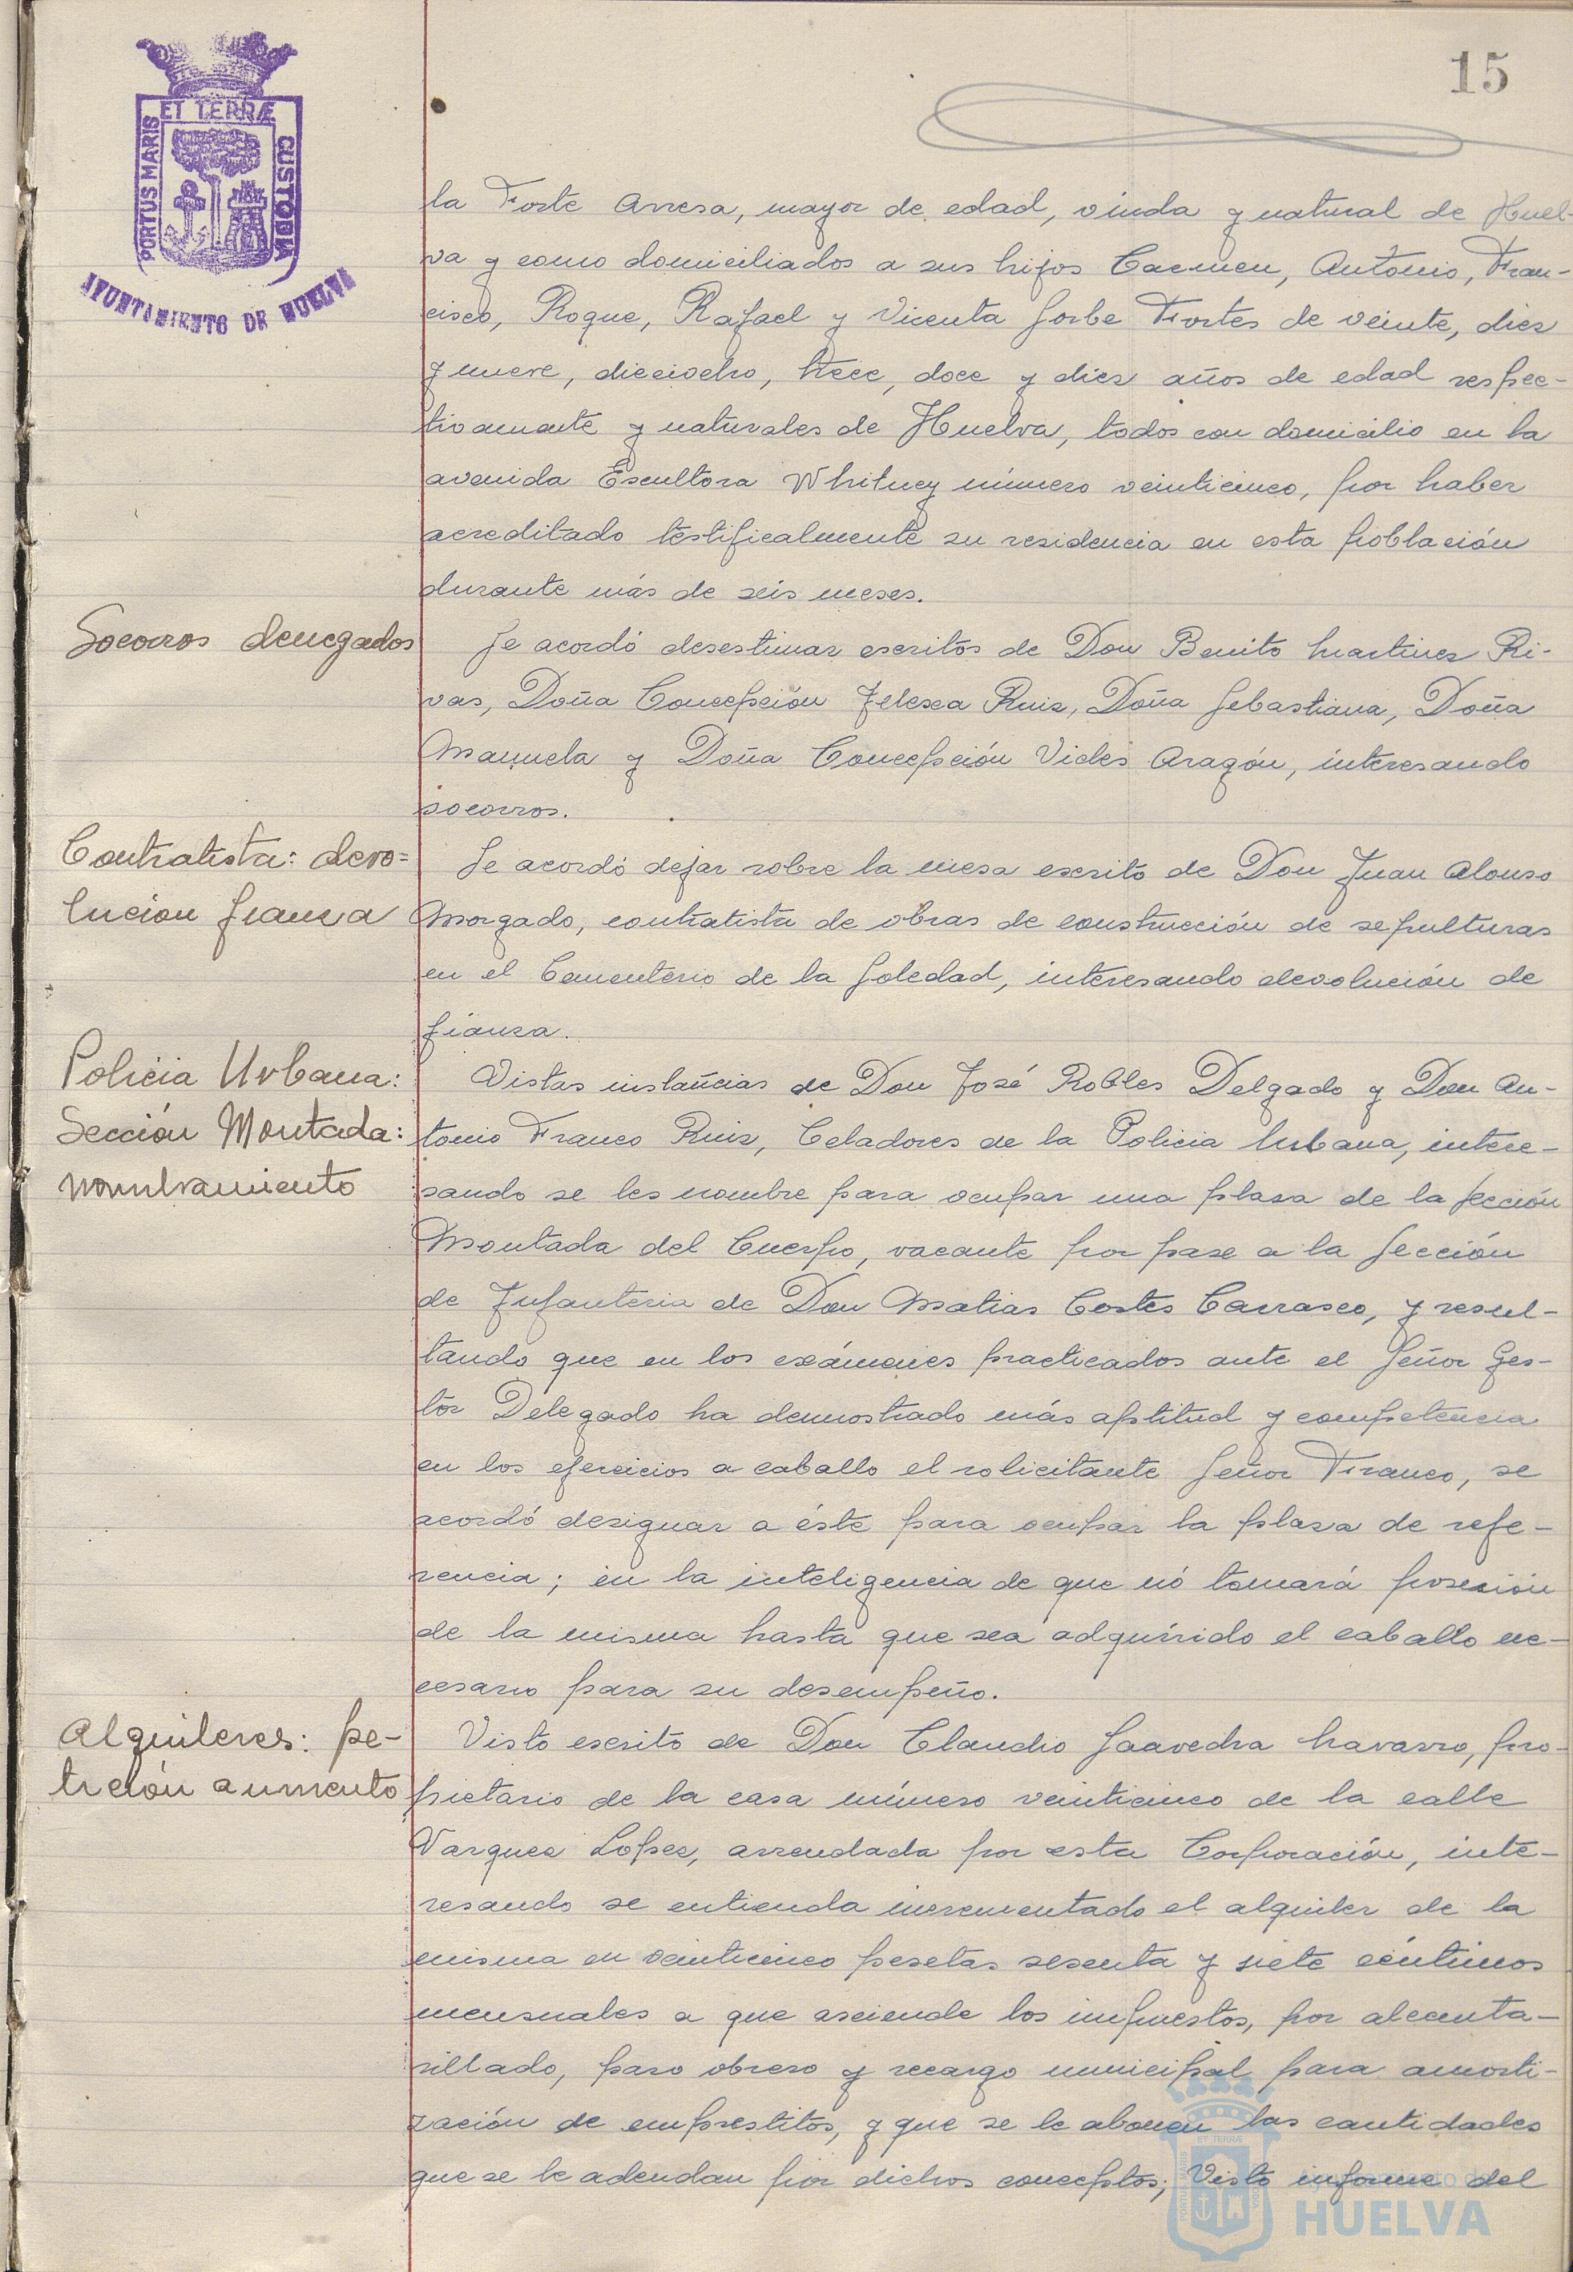 15
ET TERRÆ
PORTUS MARIS
CUSTODIA
AYUNTAMIENTO DE HUELVA
la Forte Arresa, mayor de edad, viuda y natural de Huel-
va y como domiciliados a sus hijos Carmen, Antonio, Fran-
cisco, Roque, Rafael y Vicenta Forbe Fortes de veinte, diez
y nueve, dieciocho, trece, doce y diez años de edad respec-
tivamente y naturales de Huelva, todos con domicilio en la
avenida Escultora Whitney número veinticinco, por haber
acreditado testificalmente su residencia en esta población
durante más de seis meses.
Socorros denegados
Se acordó desestimar escritos de Don Benito Martinez Ri-
vas, Doña Concepción Ruiz, Doña Sebastiana, Doña
Manuela y Doña Concepción Vides Aragón, interesando
socorros.
Contratista: devo=
lucion fianza
Se acordó dejar sobre la mesa escrito de Don Juan Alonso
Morgado, contratista de obras de construcción de sepulturas
en el Cementerio de la Soledad, interesando devolución de
fianza.
Policia Urbana:
Sección Montada:
nombramiento
Vistas instancias de Don José Robles Delgado y Don An-
tonio Franco Ruiz, Celadores de la Policia Urbana, intere-
sando se les nombre para ocupar una plaza de la Sección
Montada del Cuerpo, vacante por pase a la Sección
de Infanteria de Don Matias Cortes Carrasco, y resul-
tando que en los exámenes practicados ante el Señor Ges-
tor Delegado ha demostrado más aptitud y competencia
en los ejercicios a caballo el solicitante Señor Franco, se
acordó designar a éste para ocupar la plaza de refe-
rencia; en la inteligencia de que nó tomará posesión
de la misma hasta que sea adquirido el caballo ne-
cesario para su desempeño.
Alquileres: pe-
tición aumento
Visto escrito de Don Claudio Saavedra Navarro, pro-
pietario de la casa número veinticinco de la calle
Vazquez Lopez, arrendada por esta Corporación, inte-
resando se entienda incrementado el alquiler de la
misma en veinticinco pesetas sesenta y siete céntimos
mensuales a que asciende los impuestos, por alcanta-
rillado, paro obrero y recargo municipal para amorti-
zación de emprestitos, y que se le abonen las cantidades
que se le adeudan por dichos conceptos; Visto informe del
Ayuntamiento de
HUELVA